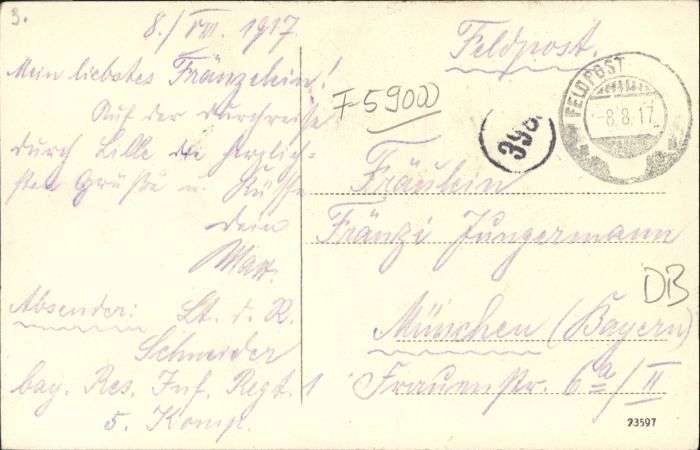 3.
8./VIII. 1917.
Mein liebstes Fränzelein!
Auf der Durchreise
durch Lille die herzlich-
sten Grüße u. Küsse
Dein
Max.
Absender: Lt. d. R.
Schneider
bay. Res. Inf. Regt. 1
5. Komp.
Feldpost.
FELDPOST
-8.8.17
F 5900
396
Fräulein
Fränzi Jungermann
DB
München (Bayern)
Frauenstr. 6a/II
23597